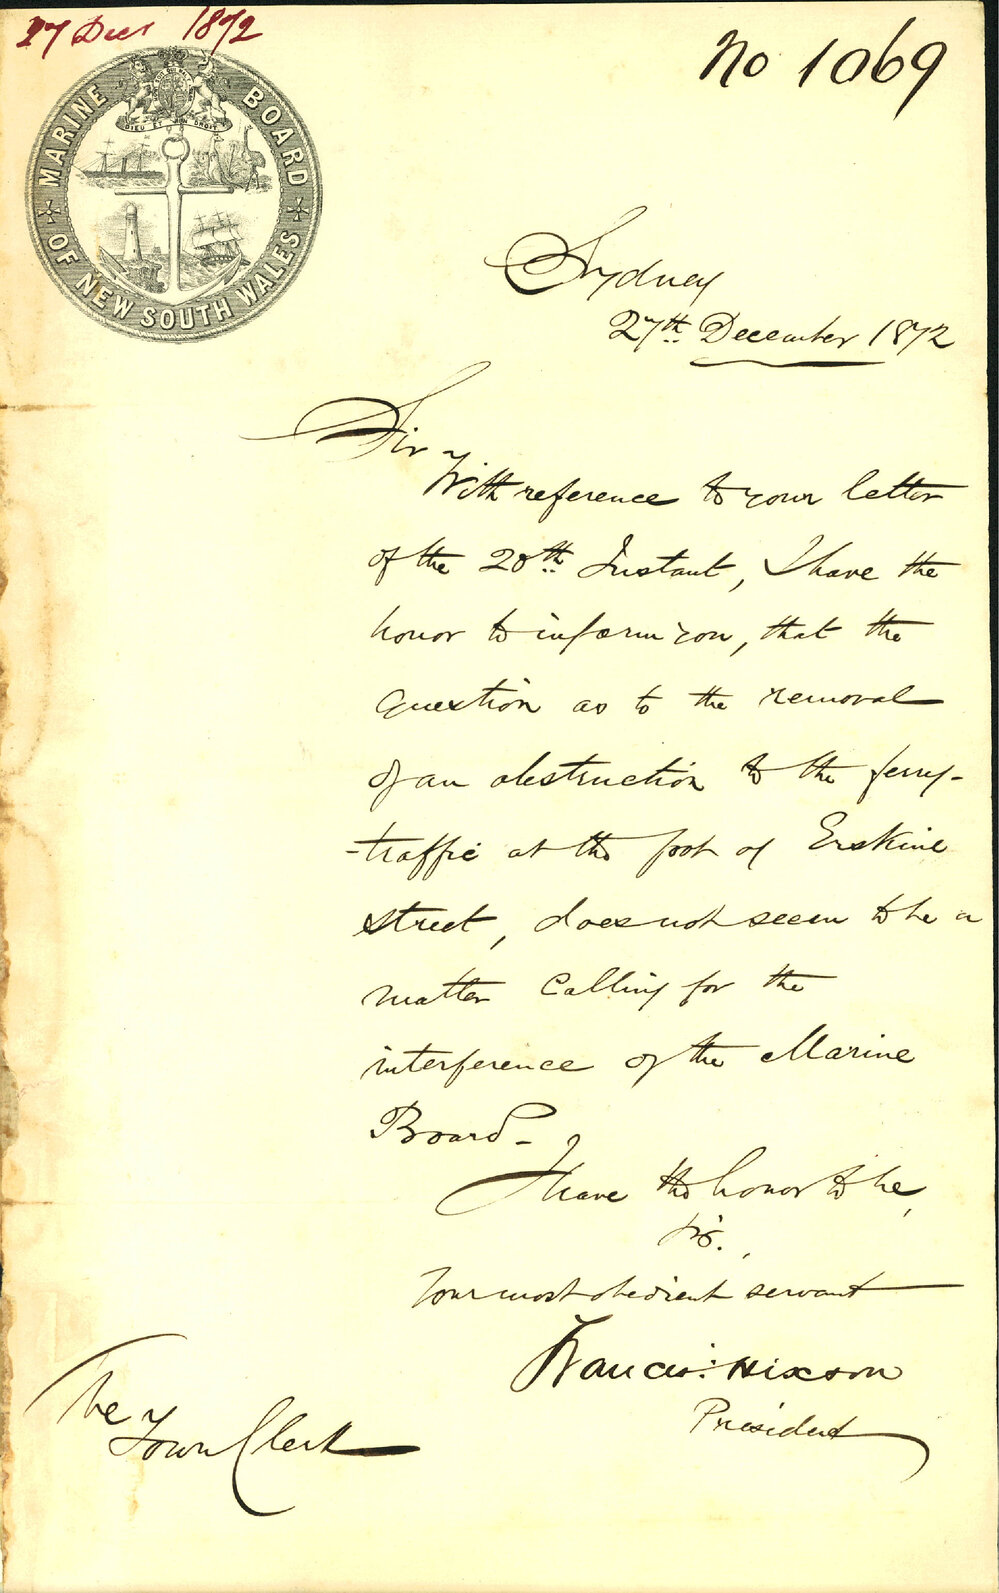 27 Decr 1872
No 1069
MARINE BOARD
OF NEW SOUTH WALES
DIEU ET MON DROIT
Sydney
27th December 1872
Sir
With reference to your letter
of the 20th Instant, I have the
honor to inform you, that the
question as to the removal
of an obstruction to the ferry-
-traffic at the foot of Erskine
street, does not seem to be a
matter calling for the
interference of the Marine
Board-
I have the honor to be,
Sir.,
Your most obedient servant
Francis: Hixson
President
The
Town Clerk